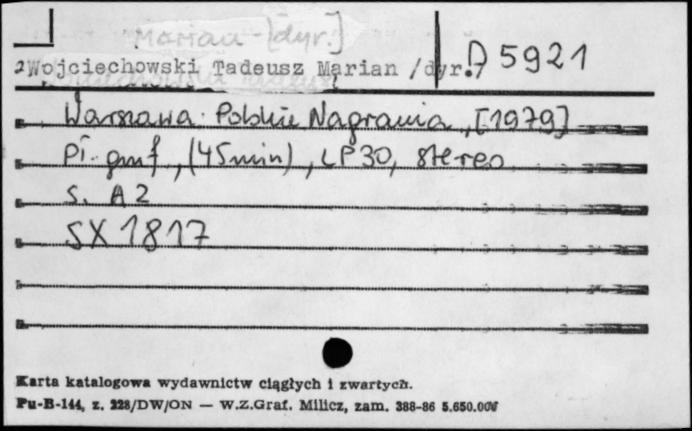 Marian [dyr.]
2Wojciechowski Tadeusz Marian /dyr./ D 5921
Warszawa: Polskie Nagrania, [1979]
Pł. gmf, (45min), LP30, stereo
S. A2
SX 1817
Karta katalogowa wydawnictw ciągłych i zwartych.
Pu-B-144, z. 228/DW/ON — W.Z.Graf. Milicz, zam. 388-86 5.650.000